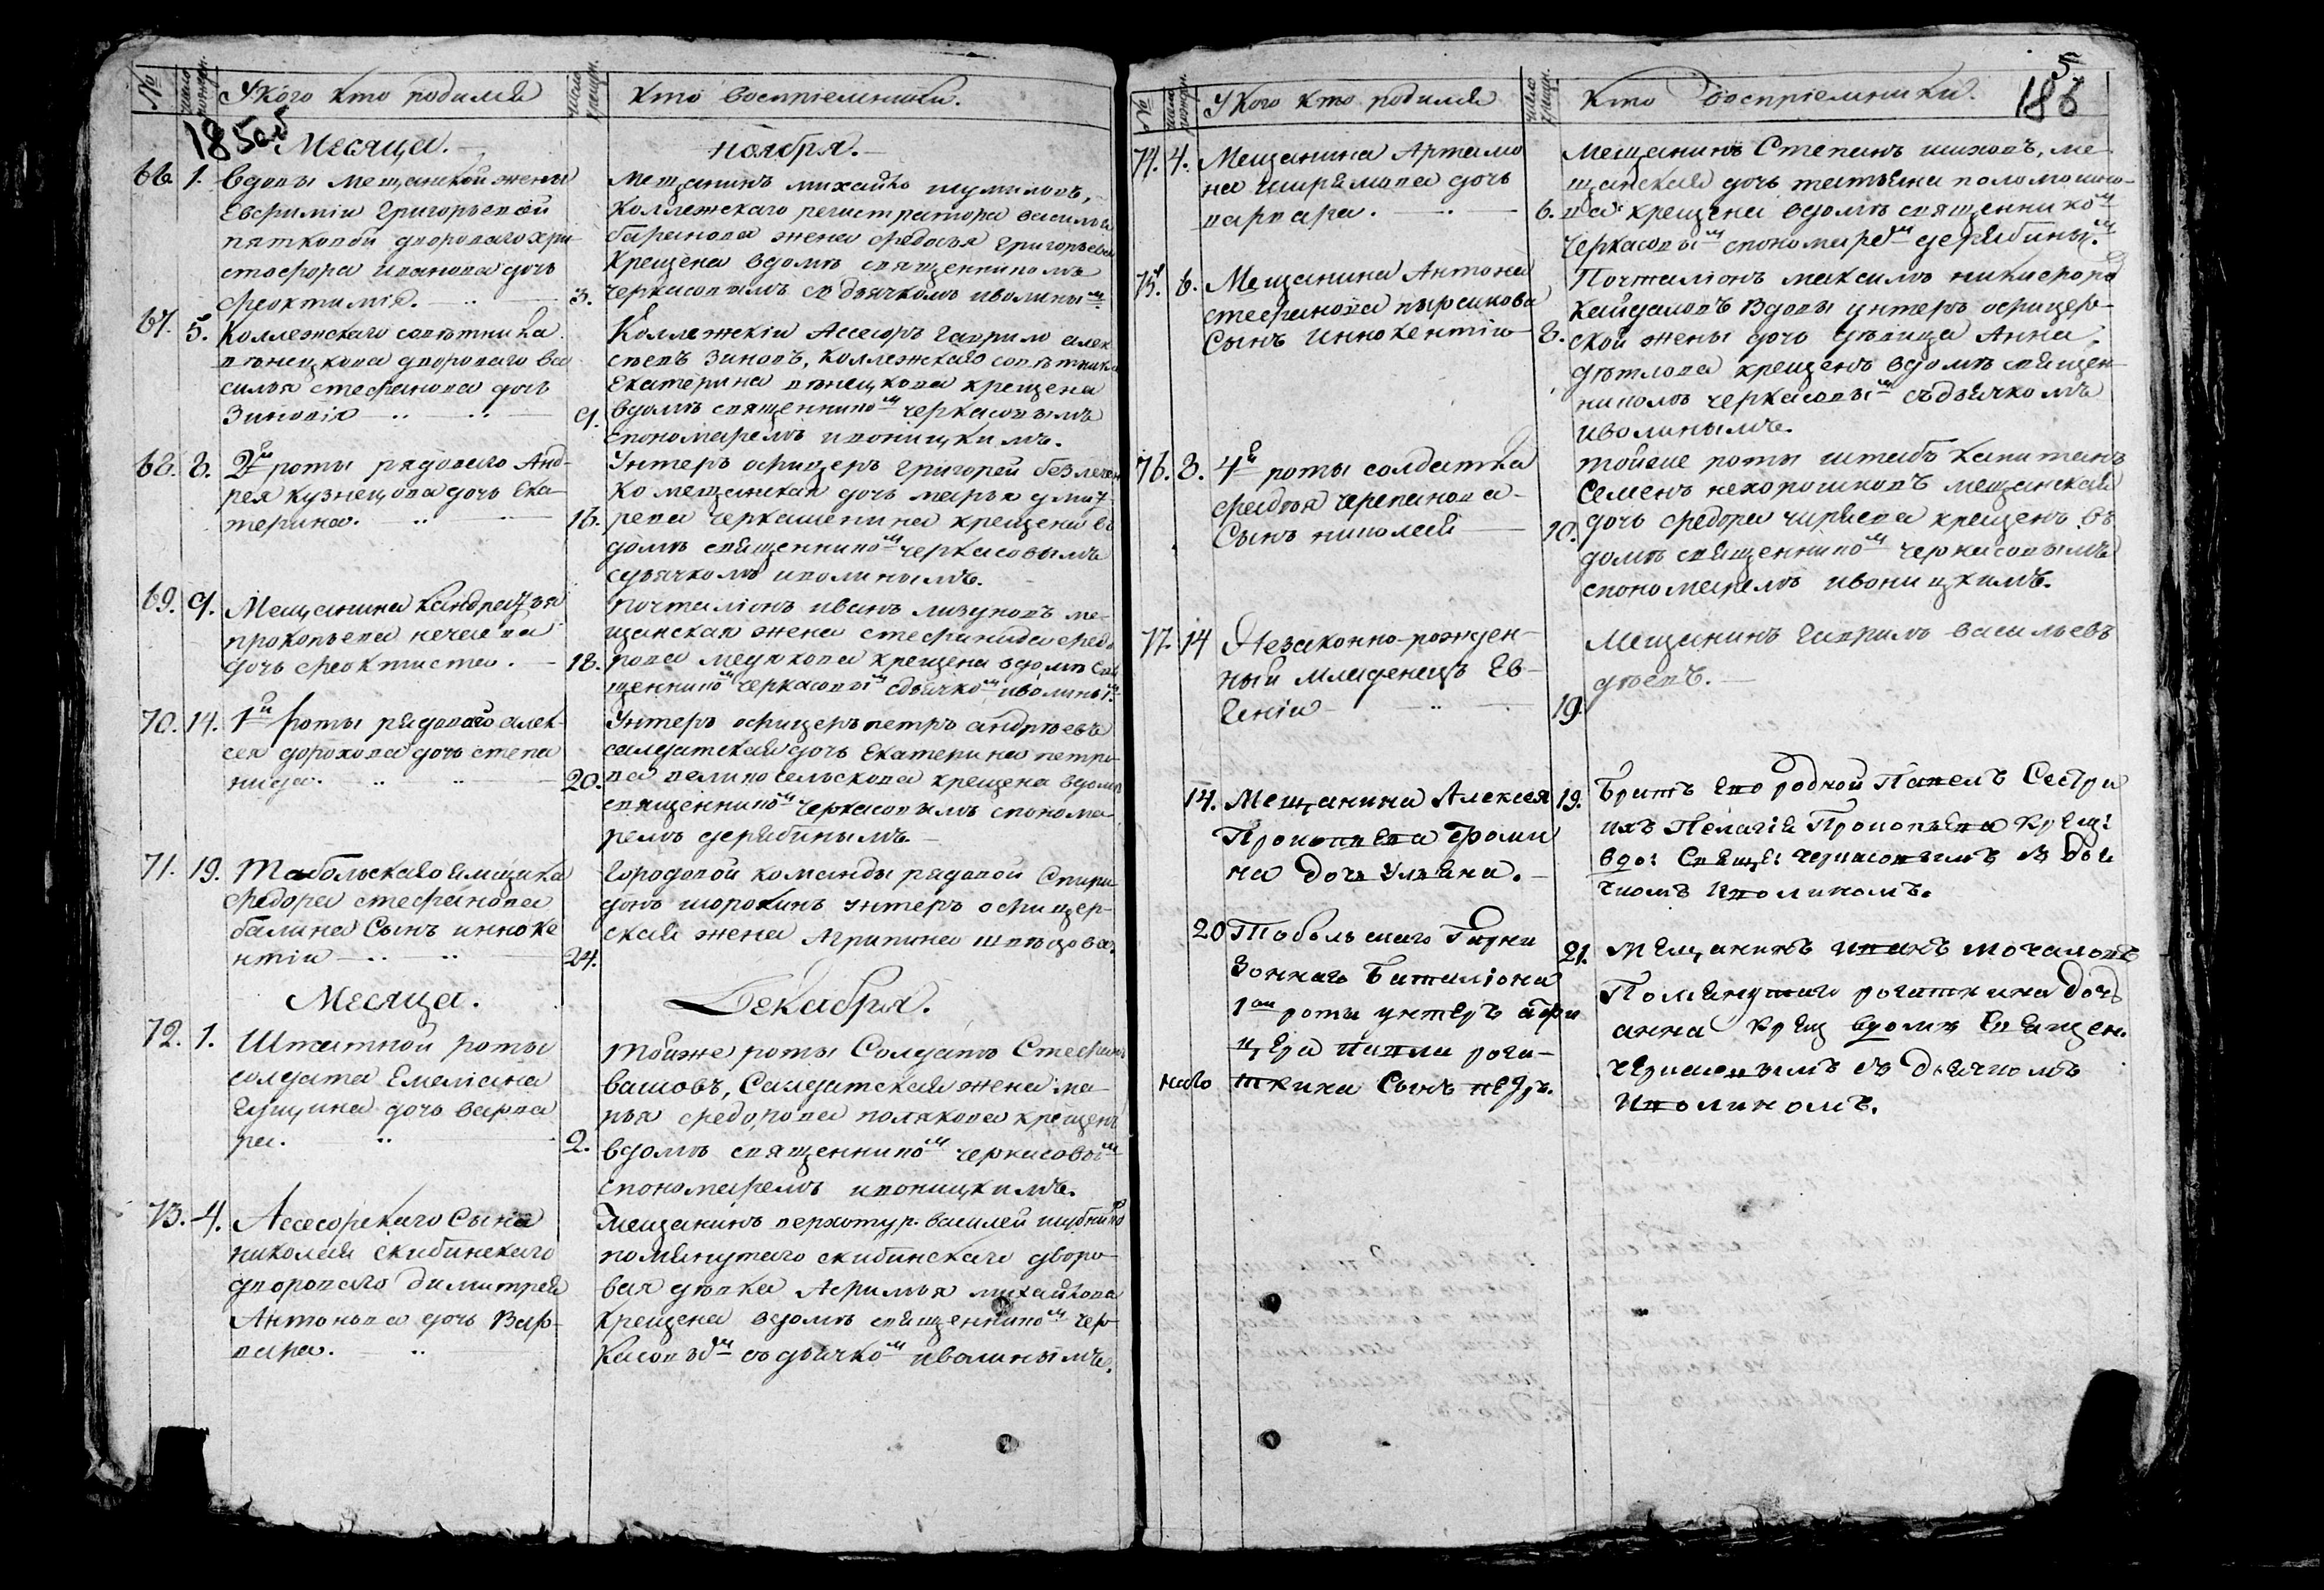 № число рожден. У кого кто родился число крещен. Кто восприемники.
185 об
Месяца. ноября.
66. 1. вдовы мещанской жены
Евфимии Григорьевой
пятковой дворового хри
стофора иванова дочь
феоктимия. 3.
мещанинъ михайло шумиловъ,
коллежскаго регистратора василья
баранова жена федосья григорьева
крещена вдомѣ священникомъ
черкасовымъ съ дьячкомъ иволины(м)
67. 5. Коллежскаго советника
вънецкова дворового ва
силья стефанова дочь
Зиновия 9.
Коллежский Ассесоръ гаврило алек
сѣевъ Зиновъ, коллежскаго советника
Екатерина вѣнецкова крещена
вдомѣ священнико(м) черкасовымъ
спономаремъ ивоницкимъ.
68. 8. 2й роты рядоваго Анд-
рея кузнецова дочь Ека-
терина. 16.
Унтеръ офицеръ григорей
ко мещанская дочь марья дмит
рева черкашенина крещена в
домѣ священнико(м) черкасовымъ
сдьячкомъ иволинымъ.
69. 9. Мещанина кандратья
прокопьева нечаева
дочь феоктиста. 18.
почталионъ иванъ лизуновъ ме-
щанская жена стефанида федо
рова крещена вдомѣ свя
щеннико(м) черкасовы(м) сдьячко(м) иволины(м)
70. 14. 1й роты рядоваго алек-
сея дорохова дочь степа
нида. 20.
Унтеръ офицеръ петръ андрѣевъ
салдатская дочь Екатерина петро-
ва велико сельскова крещена вдомѣ
священнико(м) черкасовымъ спонома
ремъ дерябинымъ.
71. 19. Тобольскаго ямщика
федора стефанова
балина Сынъ инноке
нтий 24.
Городовой команды рядовой Спири
донъ шорохинъ унтеръ офицер-
ская жена Агрипина швецова.
Месяца. Декабря.
72. 1. Штатной роты
солдата Емелиана
дочь варва
ра. 2.
тойже роты Солдатъ Стефанъ
вашовъ, Салдатская жена ма-
рья федорова полякова крещена
вдомѣ священнико(м) черкасовы(м)
спономаремъ ивоницкимъ.
73. 4. Ассесорскаго Сына
николая скибинскаго
двороваго димитрея
Антонова дочь Вар-
вара.
Мещанинъ верхотур. василей
помянутаго скибинскаго дворо-
вая дѣвка Афимья михайлова
крещена вдомѣ священнико(м) чер-
касовы(м) съ дьячко(м) иволинымъ.
№ число рожден. У кого кто родился число крещен. Кто восприемники. 5
186
74. 4. Мещанина Артамо
на ширямова дочь
варвара. 6.
мещанинъ Степанъ шиховъ, ме-
щанская дочь татьяна
ва крещена вдомѣ священнико(м)
черкасовы(м) спономаре(м) дерябины(м).
75. 6. Мещанина Антона
стефанова пырсикова
Сынъ Иннокентий 8.
Почталионъ максимъ никифоро
кайдаловъ вдовы унтеръ офицер-
ской жены дочь дѣвица Анна
дѣтлова крещенъ вдомѣ священ-
никомъ черкасовы(м) съдьячкомъ
иволинымъ.
76. 8. 4й роты солдатка
федосья черепанова
Сынъ николай 10.
тойже роты штабъ капитанъ
Семенъ нехорошковъ мещанская
дочь федора чиряева крещенъ въ
домѣ священнико(м) черкасовымъ
спономаремъ ивоницкимъ.
77. 14 Незаконно-рожден-
ный младенецъ Ев-
гений 19.
Мещанинъ гаврилъ васильевъ
дѣевъ.
14. Мещанина Алексея 19.
Прокопьева Фоми
на дочь Ульяна.
Братъ Его родной Павелъ Сестра
ихъ Пелагия Прокопьева крещ:
вдо: Священ: черкасовымъ съ дья
чкомъ Иволиномъ.
20 Тобольскаго Гарни 21.
зоннаго Баталиона
1ой роты унтеръ афи
цера павла рога-
ткина Сынъ петръ.
наго
мещанинъ иванъ мочаловъ
Помянутаго рогаткина дочь
анна крещ вдомѣ Священ.
черкасовымъ съ дьячкомъ
Иволиномъ.